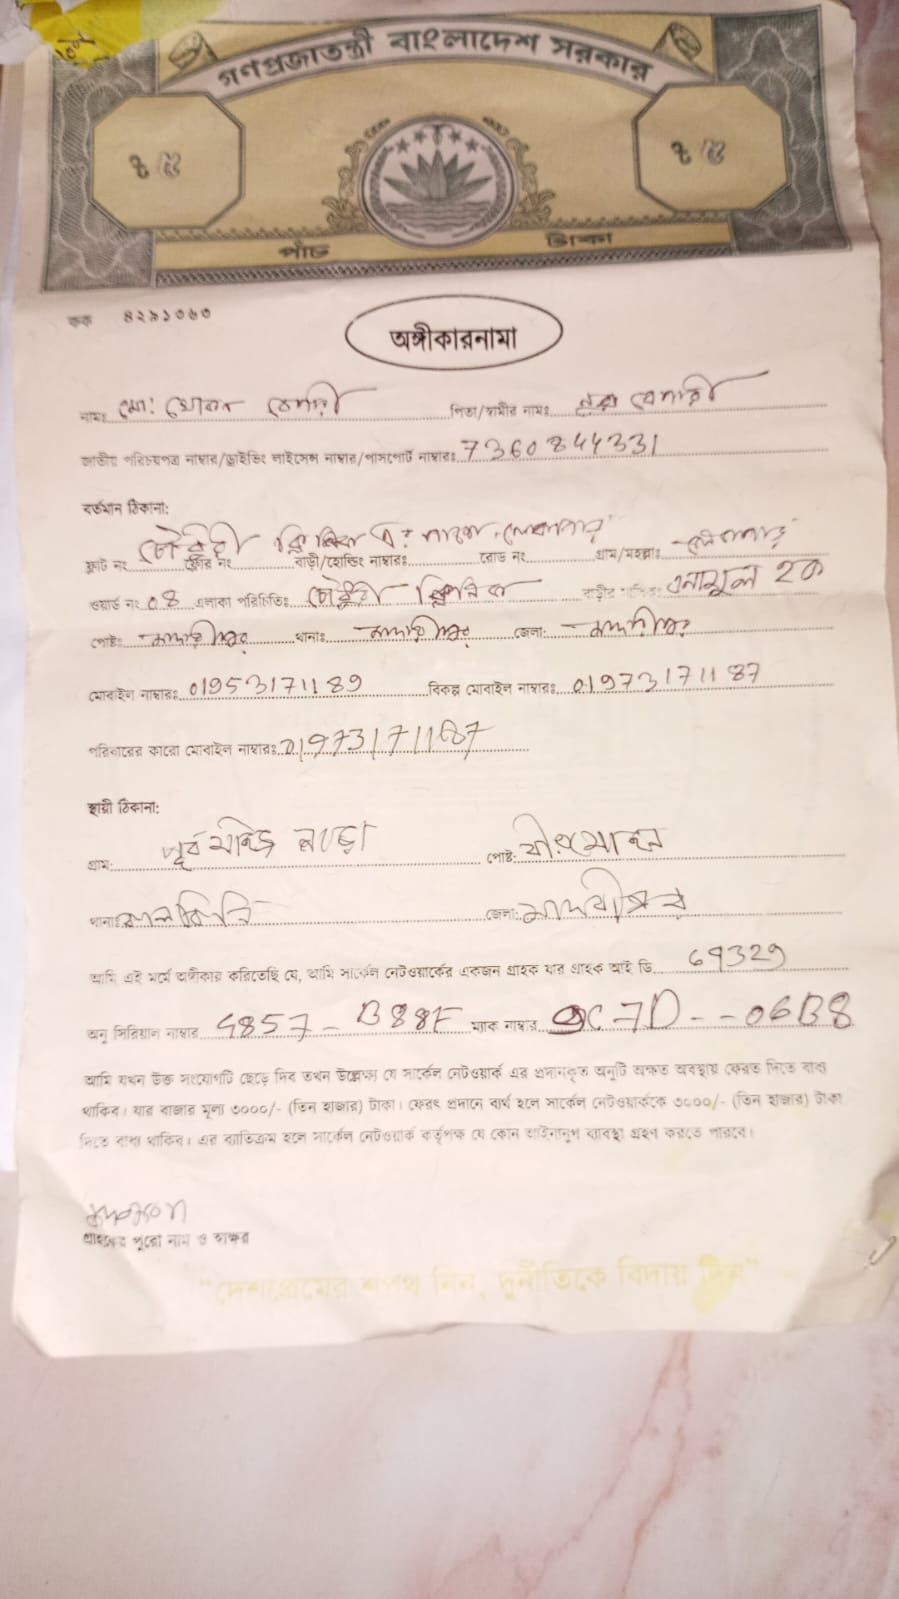 গণপ্রজাতন্ত্রী বাংলাদেশ সরকার
৳ ৫ ৳ ৫
পাঁচ টাকা
কক ৪২৯১০৬৩
অঙ্গীকারনামা
নামঃ মো: খোকন বেপারী পিতা/স্বামীর নামঃ বেপারী
জাতীয় পরিচয়পত্র নাম্বার/ড্রাইভিং লাইসেন্স নাম্বার/পাসপোর্ট নাম্বারঃ 7360844331
বর্তমান ঠিকানা:
ফ্লাট নং চৌধুরী ফ্লোর নং ক্লিনিক এর বাড়ী/হোল্ডিং নাম্বারঃ রোড নং গ্রাম/মহল্লাঃ
ওয়ার্ড নং 08 এলাকা পরিচিতিঃ চৌধুরী ক্লিনিক বাড়ীর মালিকঃ এনামুল হক
পোষ্টঃ মাদারীপুর থানাঃ মাদারীপুর জেলা: মাদারীপুর
মোবাইল নাম্বারঃ 01953171189 বিকল্প মোবাইল নাম্বারঃ 01973171187
পরিবারের কারো মোবাইল নাম্বারঃ 01973171187
স্থায়ী ঠিকানা:
গ্রাম: পূর্ব পোষ্ট: বীরমোহন
থানাঃ কালকিনি জেলা: মাদারীপুর
আমি এই মর্মে অঙ্গীকার করিতেছি যে, আমি সার্কেল নেটওয়ার্কের একজন গ্রাহক যার গ্রাহক আই ডি 69329
অনু সিরিয়াল নাম্বার 4857-B88F ম্যাক নাম্বার 9C7D--06B8
আমি যখন উক্ত সংযোগটি ছেড়ে দিব তখন উল্লেক্ষ্য যে সার্কেল নেটওয়ার্ক এর প্রদানকৃত অনুটি অক্ষত অবস্থায় ফেরত দিতে বাধ্য
থাকিব। যার বাজার মূল্য ৩০০০/- (তিন হাজার) টাকা। ফেরৎ প্রদানে ব্যর্থ হলে সার্কেল নেটওয়ার্ককে ৩০০০/- (তিন হাজার) টাকা
দিতে বাধ্য থাকিব। এর ব্যতিক্রম হলে সার্কেল নেটওয়ার্ক কর্তৃপক্ষ যে কোন আইনানুগ ব্যবস্থা গ্রহণ করতে পারবে।
গ্রাহকের পুরো নাম ও স্বাক্ষর
"দেশপ্রেমের শপথ নিন, দুর্নীতিকে বিদায় দিন"